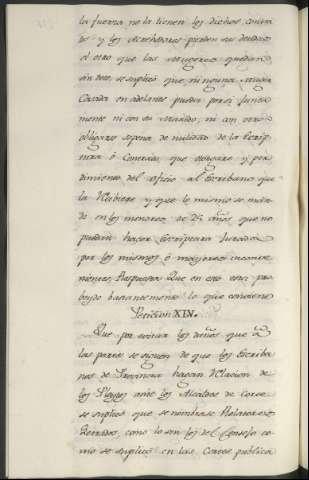 la fuerza no la tienen los dichos contra
tos y los Acrehedores pierden su deuda
el otro que las Mugeres quedan
sin dote, se suplicó que, ninguna Muger
Casada en adelante pueda por sí junta
mente ni con su Marido, ni con otro
obligarse sopena de nulidad de la Escrip
tura ó Contrato, que otorgare y per
dimiento del oficio al Escribano que
la Recibiere y que lo mismo se man
de en los menores de 25 años que no
puedan hacer Escriptura Jurada
por los mismos ó mayores incombe
nientes, Respuesta: Que en esto está pro
beydo bastantemente lo que conbiene
Petición XIV.
Que por evitar los daños que á
las partes se siguen de que los Escriba
nos de Provincia hacian Relacion de
los Pleytos ante los Alcaldes de Corte
se suplicó que se nombrase Relatores
Letrados, como lo son los del Consejo co
mo se suplicó en las Cortes pública